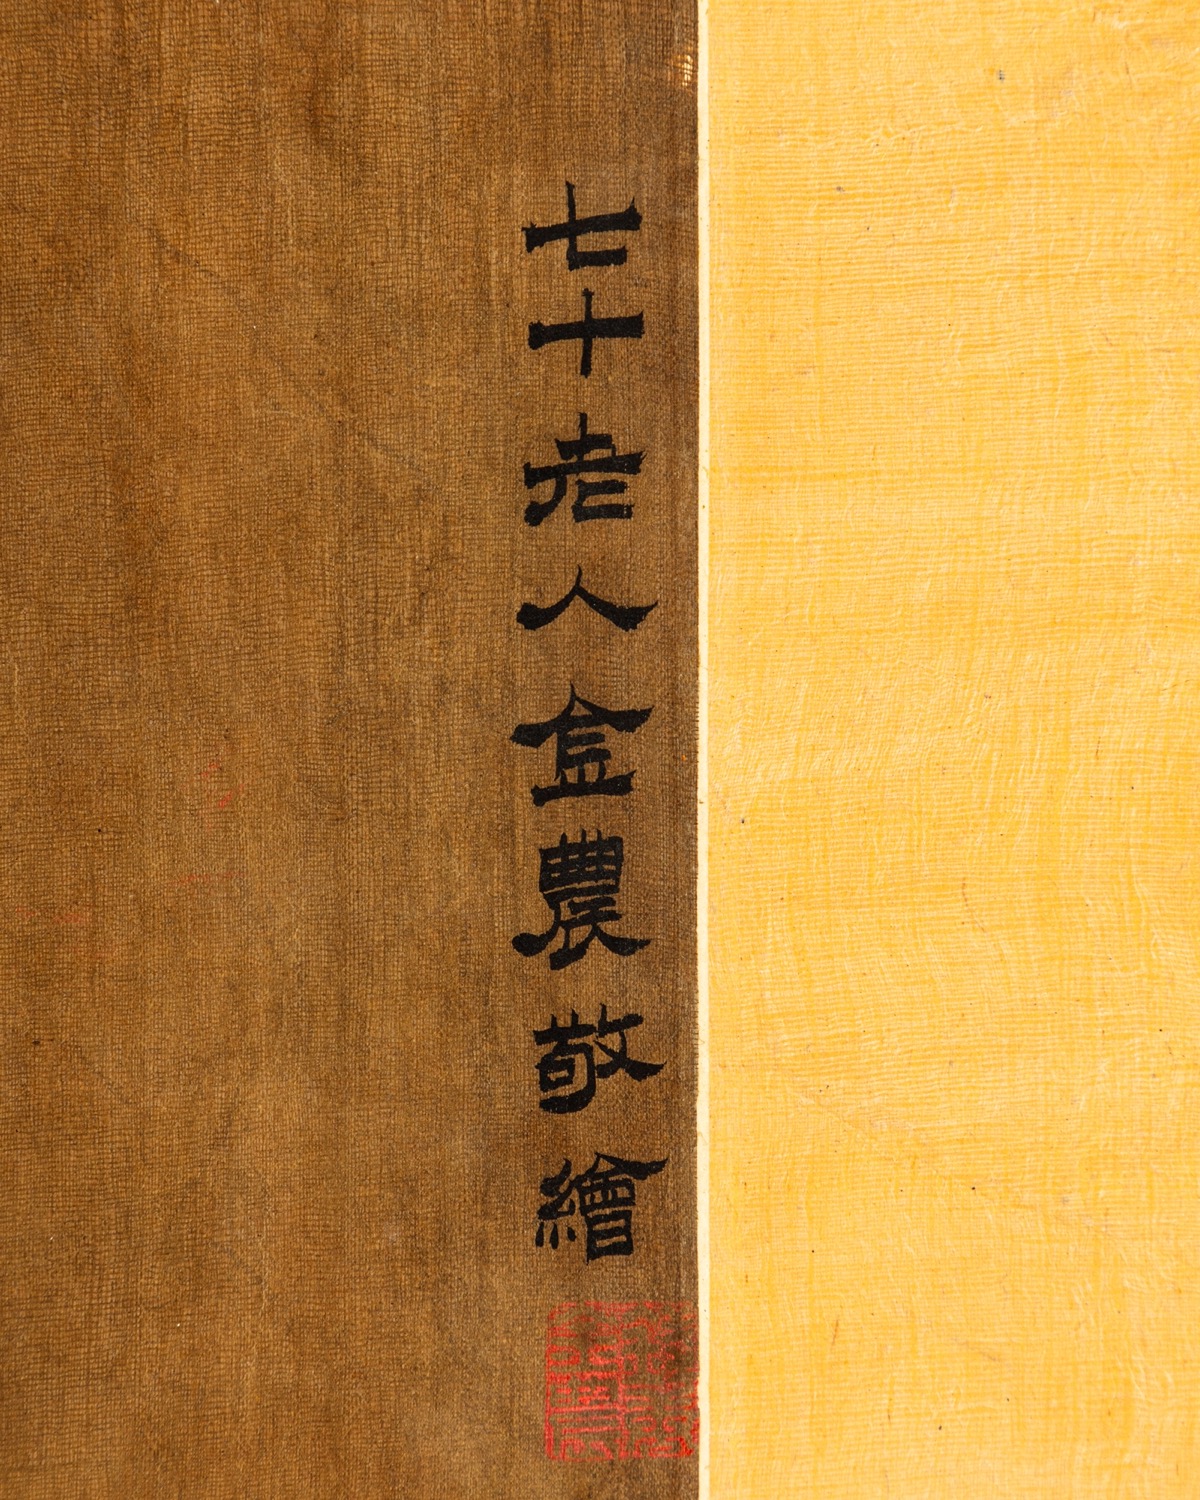 七十老人金農敬繪